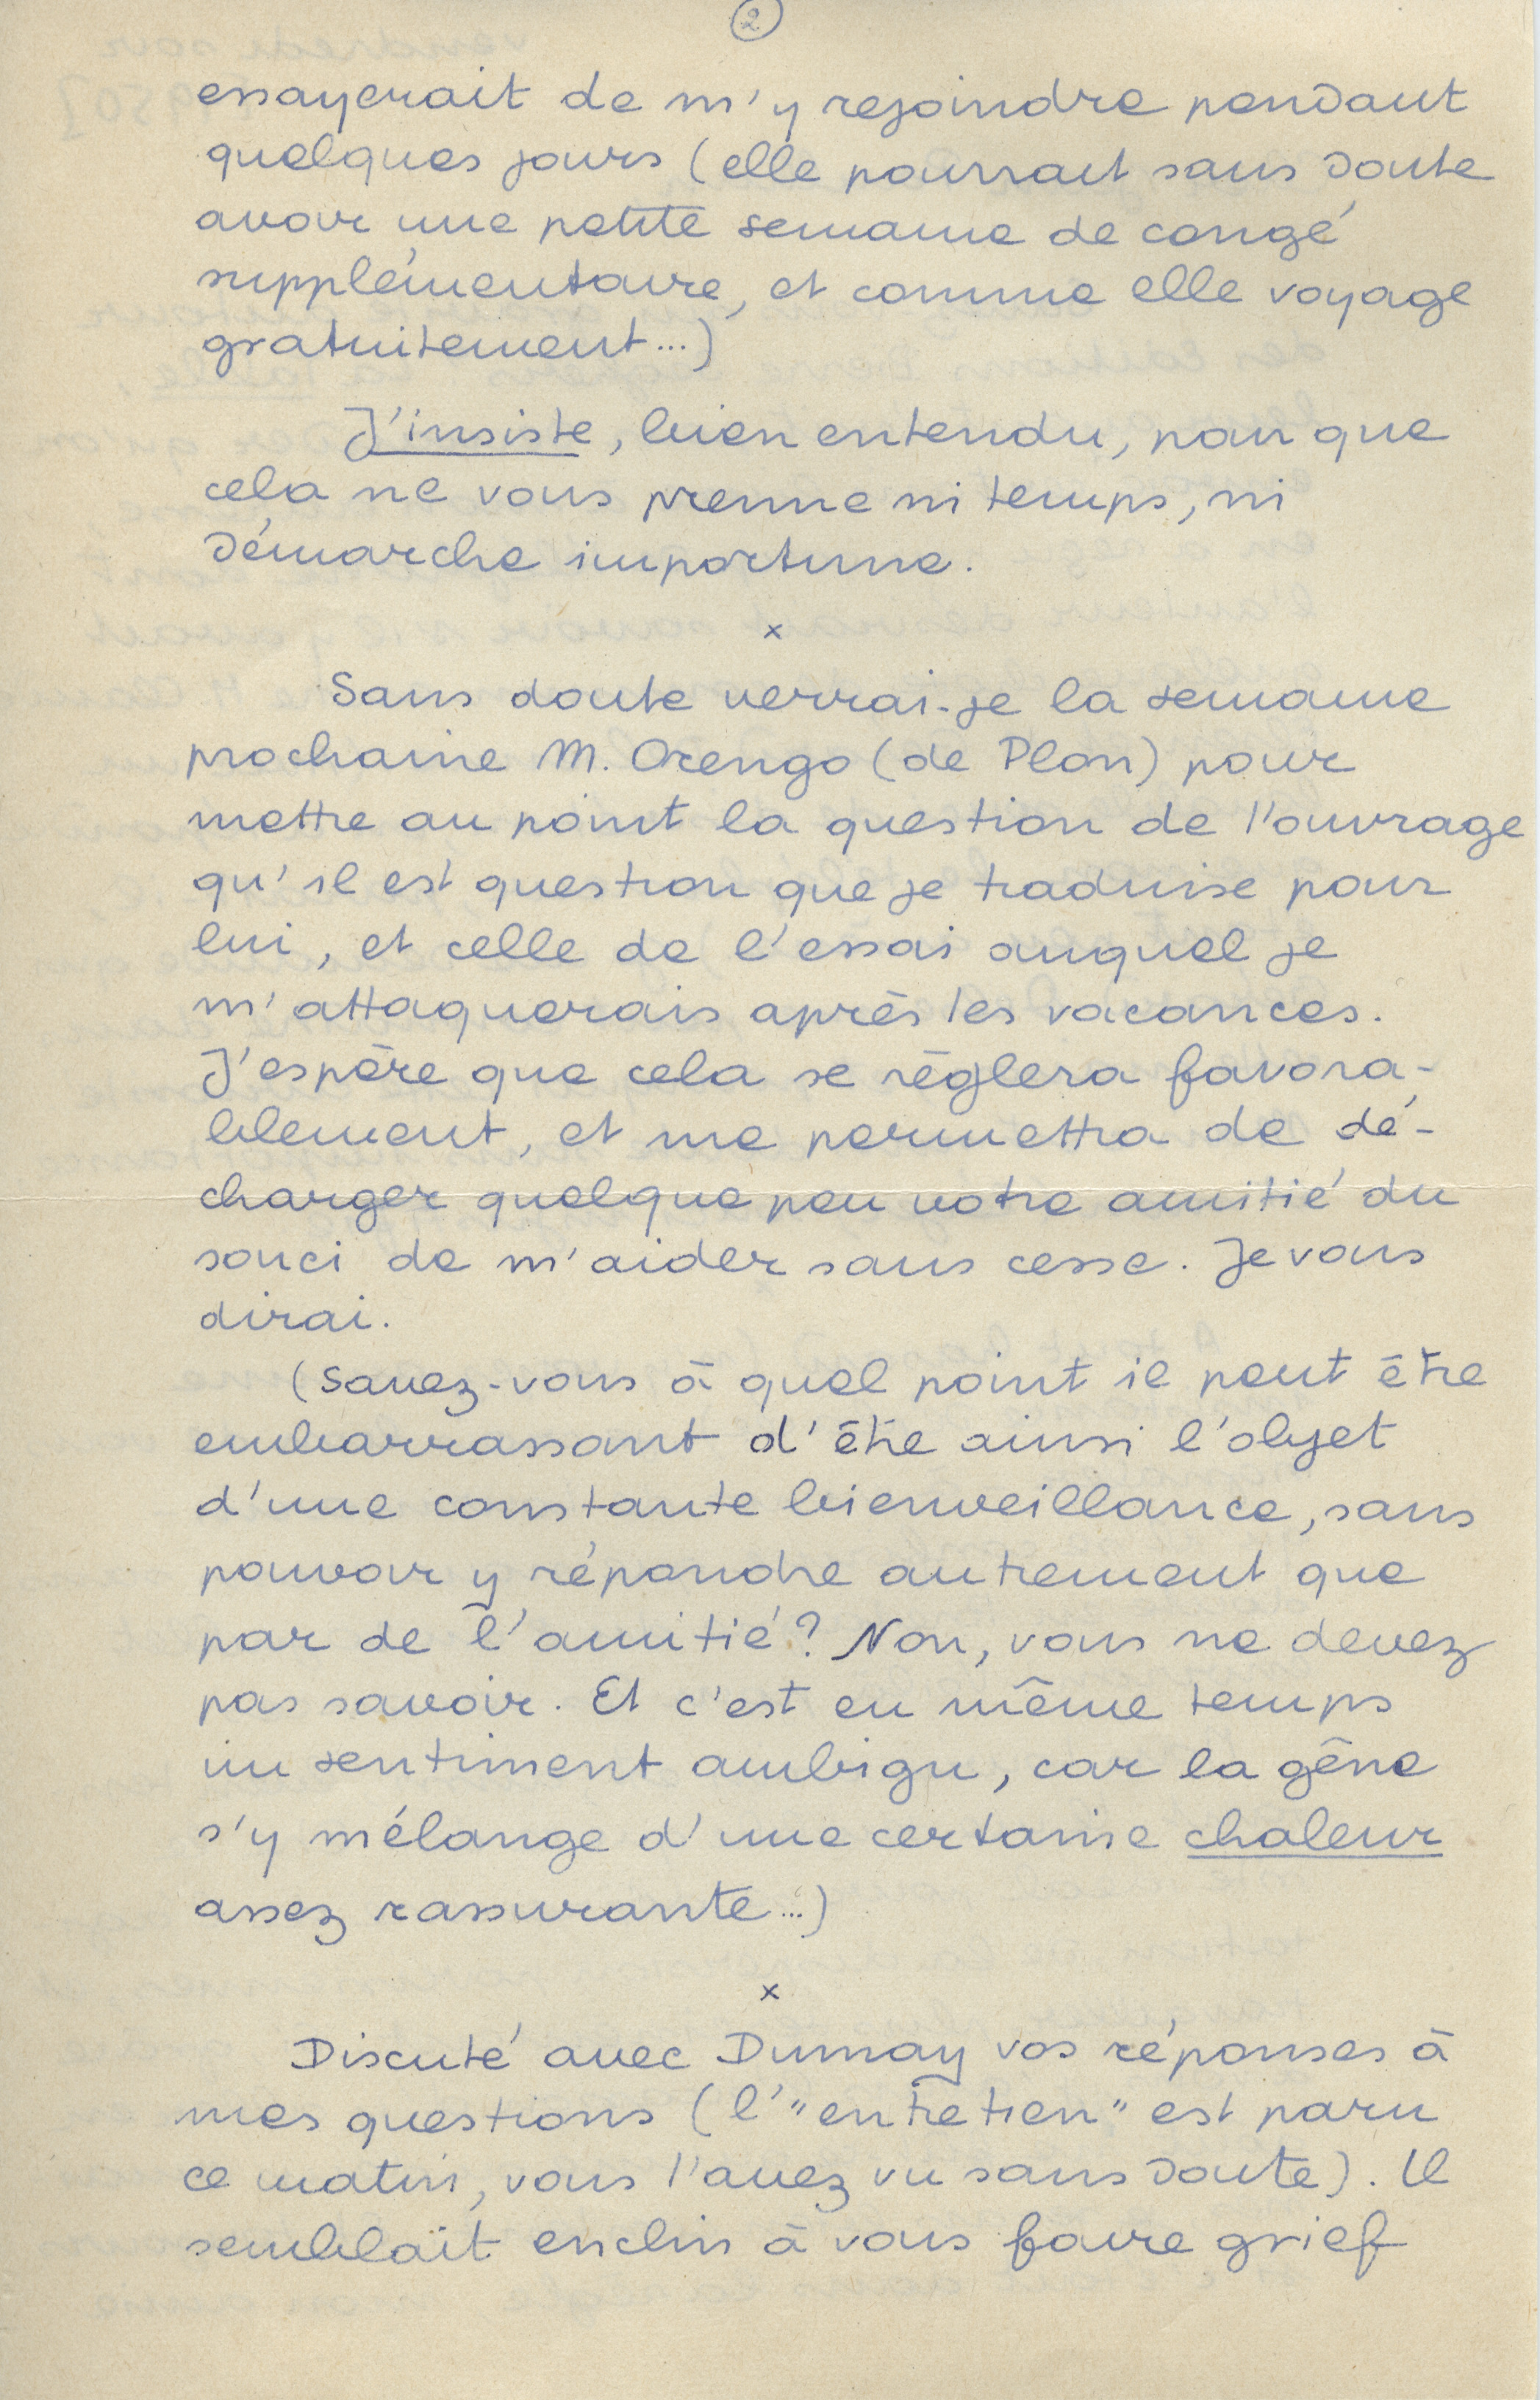 2
essayerait de m'y rejoindre pendant
quelques jours (elle pourrait sans doute
avoir une petite semaine de congé
supplémentaire, et comme elle voyage
gratuitement...)
J'insiste, bien entendu, pour que
cela ne vous prenne ni temps, ni
démarche importune.
x
Sans doute verrai-je la semaine
prochaine M. Orengo (de Plon) pour
mettre au point la question de l'ouvrage
qu'il est question que je traduise pour
lui, et celle de l'essai auquel je
m'attaquerais après les vacances.
J'espère que cela se règlera favora-
blement, et me permettra de dé-
charger quelque peu votre amitié du
souci de m'aider sans cesse. Je vous
dirai.
(Savez-vous à quel point il peut être
embarrassant d'être ainsi l'objet
d'une constante bienveillance, sans
pouvoir y répondre autrement que
par de l'amitié? Non, vous ne devez
pas savoir. Et c'est en même temps
un sentiment ambigu, car la gêne
s'y mélange d'une certaine chaleur
assez rassurante...)
x
Discuté avec Dumay vos réponses à
mes questions (l'"entretien" est paru
ce matin, vous l'avez vu sans doute). Il
semblait enclin à vous faire grief